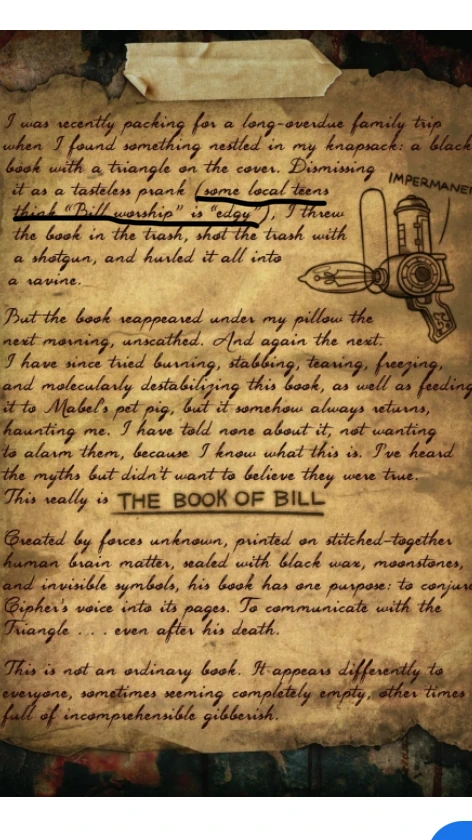 I was recently packing for a long-overdue family trip
when I found something nestled in my knapsack: a black
book with a triangle on the cover. Dismissing
it as a tasteless prank (some local teens
think "Bill worship" is "edgy"), I threw
the book in the trash, shot the trash with
a shotgun, and hurled it all into
a ravine.
IMPERMANE
But the book reappeared under my pillow the
next morning, unscathed. And again the next.
I have since tried burning, stabbing, tearing, freezing,
and molecularly destabilizing this book, as well as feeding
it to Mabel's pet pig, but it somehow always returns,
haunting me. I have told none about it, not wanting
to alarm them, because I know what this is. I've heard
the myths but didn't want to believe they were true.
This really is THE BOOK OF BILL
Created by forces unknown, printed on stitched-together
human brain matter, sealed with black wax, moonstones,
and invisible symbols, his book has one purpose: to conjure
Cipher's voice into its pages. To communicate with the
Triangle . . . even after his death.
This is not an ordinary book. It appears differently to
everyone, sometimes seeming completely empty, other times
full of incomprehensible gibberish.